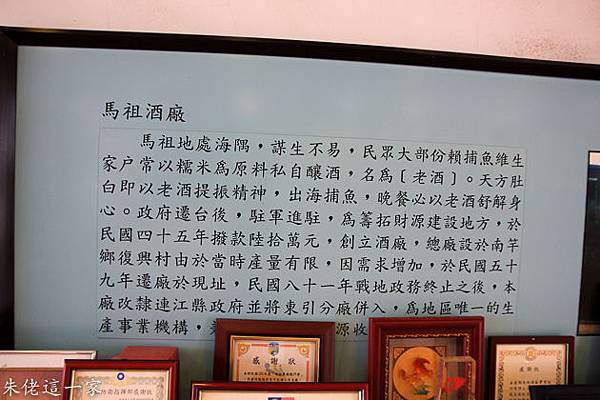 馬祖酒廠
馬祖地處海隅，謀生不易，民眾大部份賴捕魚維生
家戶常以糯米為原料私自釀酒，名為〔老酒〕。天方肚
白即以老酒提振精神，出海捕魚，晚餐必以老酒舒解身
心。政府遷台後，駐軍進駐，為籌拓財源建設地方，於
民國四十五年撥款陸拾萬元，創立酒廠，總廠設於南竿
鄉復興村由於當時產量有限，因需求增加，於民國五十
九年遷廠於現址，民國八十一年戰地政務終止之後，本
廠改隸連江縣政府並將東引分廠併入，為地區唯一的生
產事業機構，
源收
感謝狀
感謝狀
防衛指揮部感謝狀
朱佬這一家